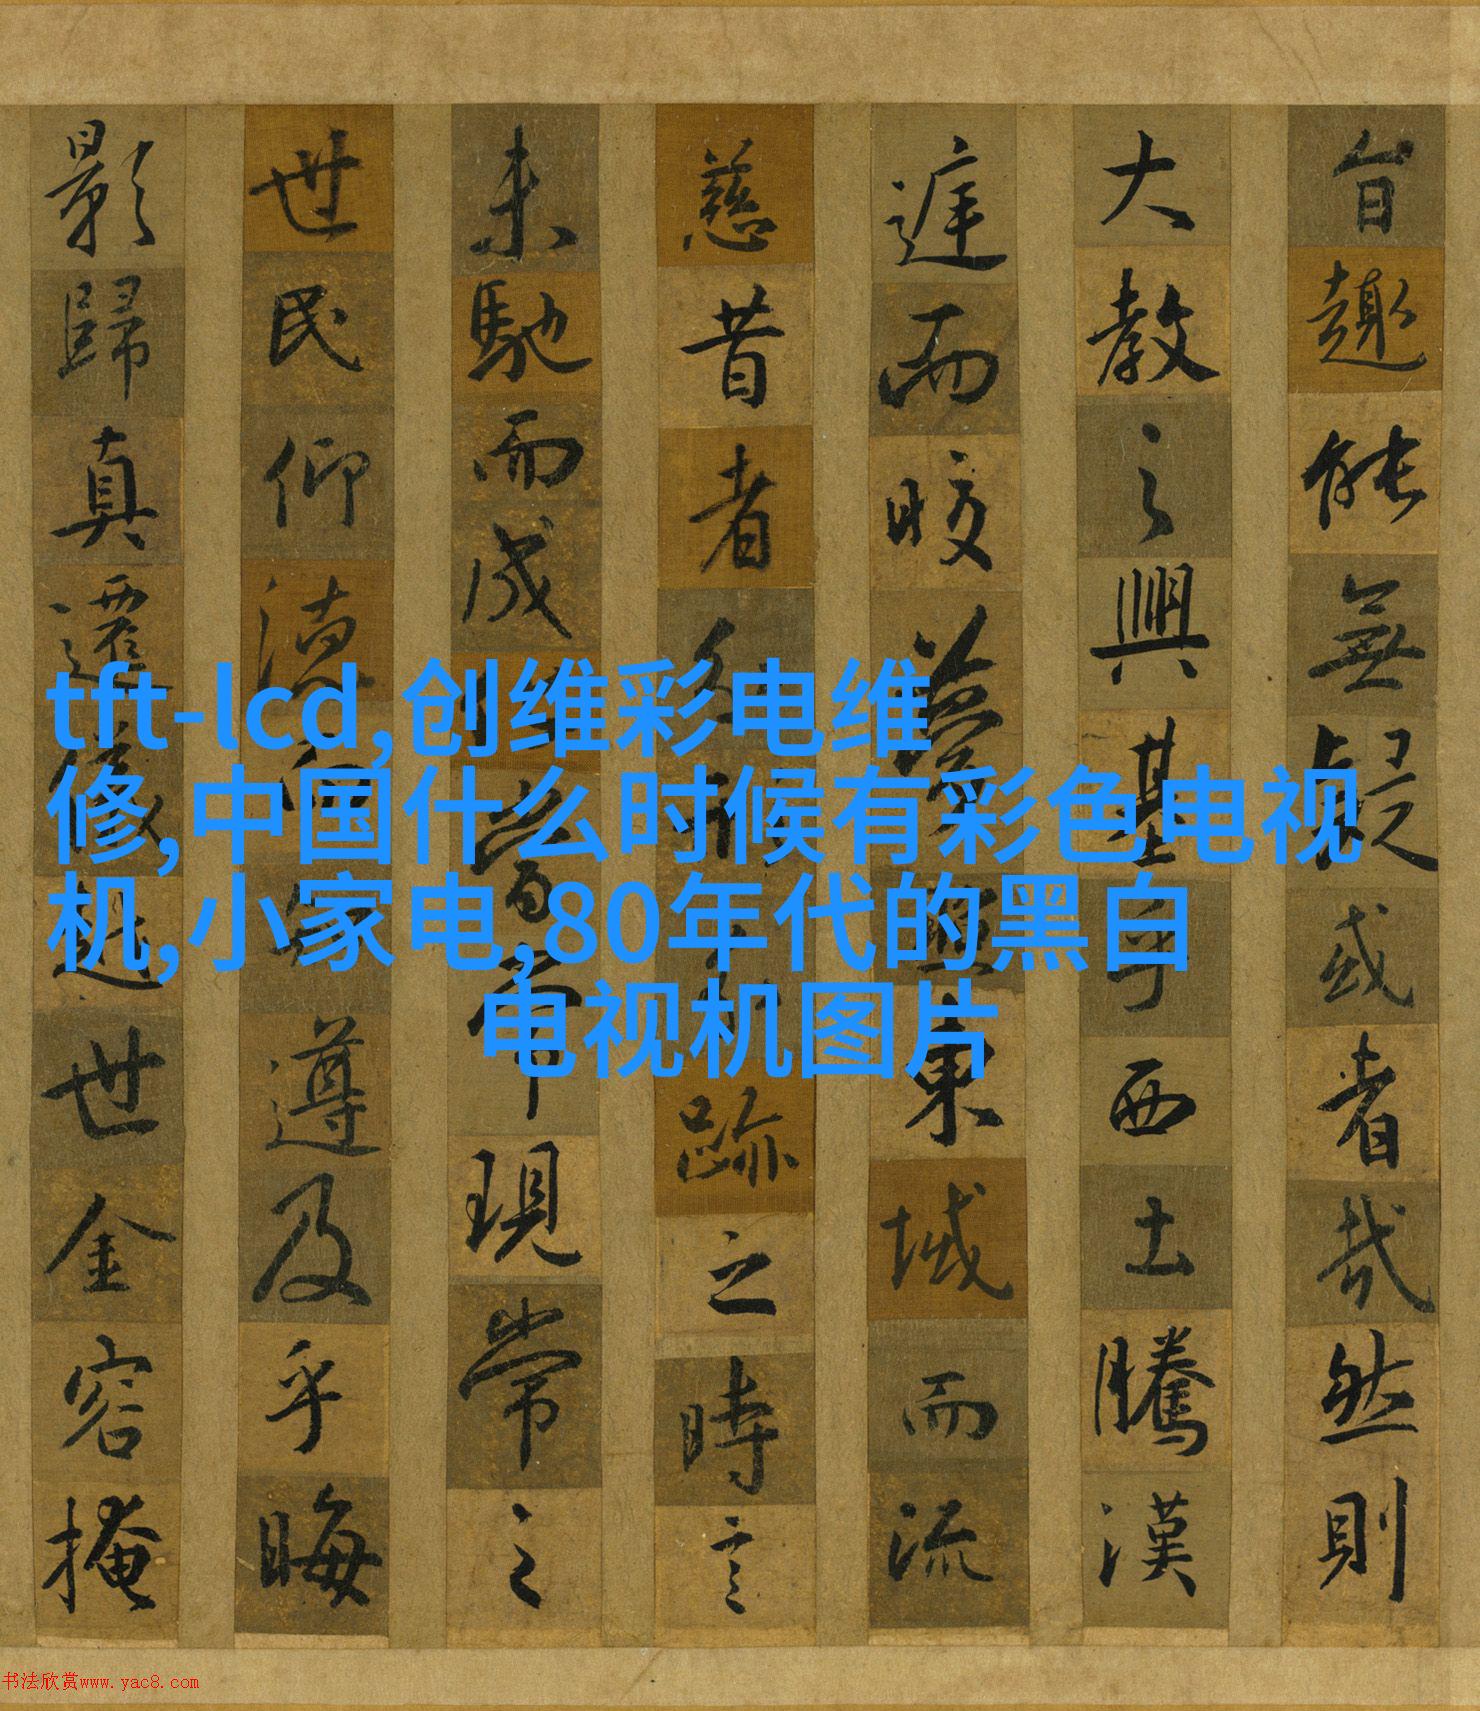 tft-lcd,创维彩电维
修,中国什么时候有彩色电视
机,小家电,80年代的黑白
电视机图片
旨趣能無疑或者哉然則
大教之興基乎西土騰漢
庭而皎夢照東域而流
慈昔者分形分跡之時言
未馳而成化當常現常之
世民仰德而知遵及乎晦
影歸真遷儀越世金容掩
书法欣赏www.yac8.com